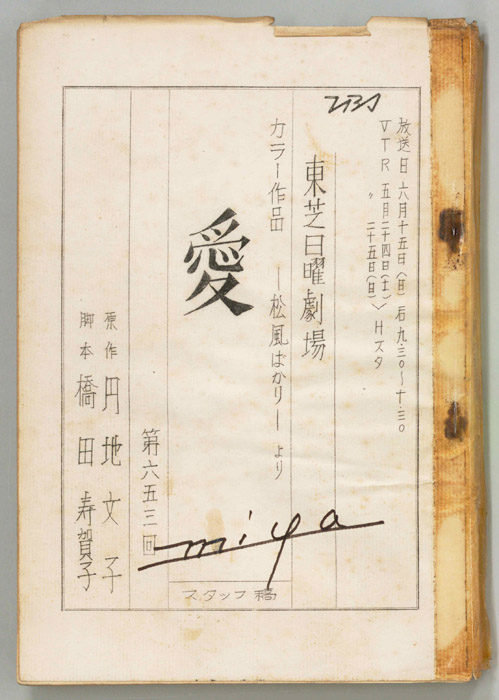 TBS
放送日 六月十五日(日) 后九.三〇〜十.三〇
VTR 五月二十四日(土)
〃 二十五日(日)〉Hスタ
東芝日曜劇場
カラー作品 ー松風ばかりーより
愛
第六五三回
原作 円地文子
脚本 橋田寿賀子
miya
スタッフ稿